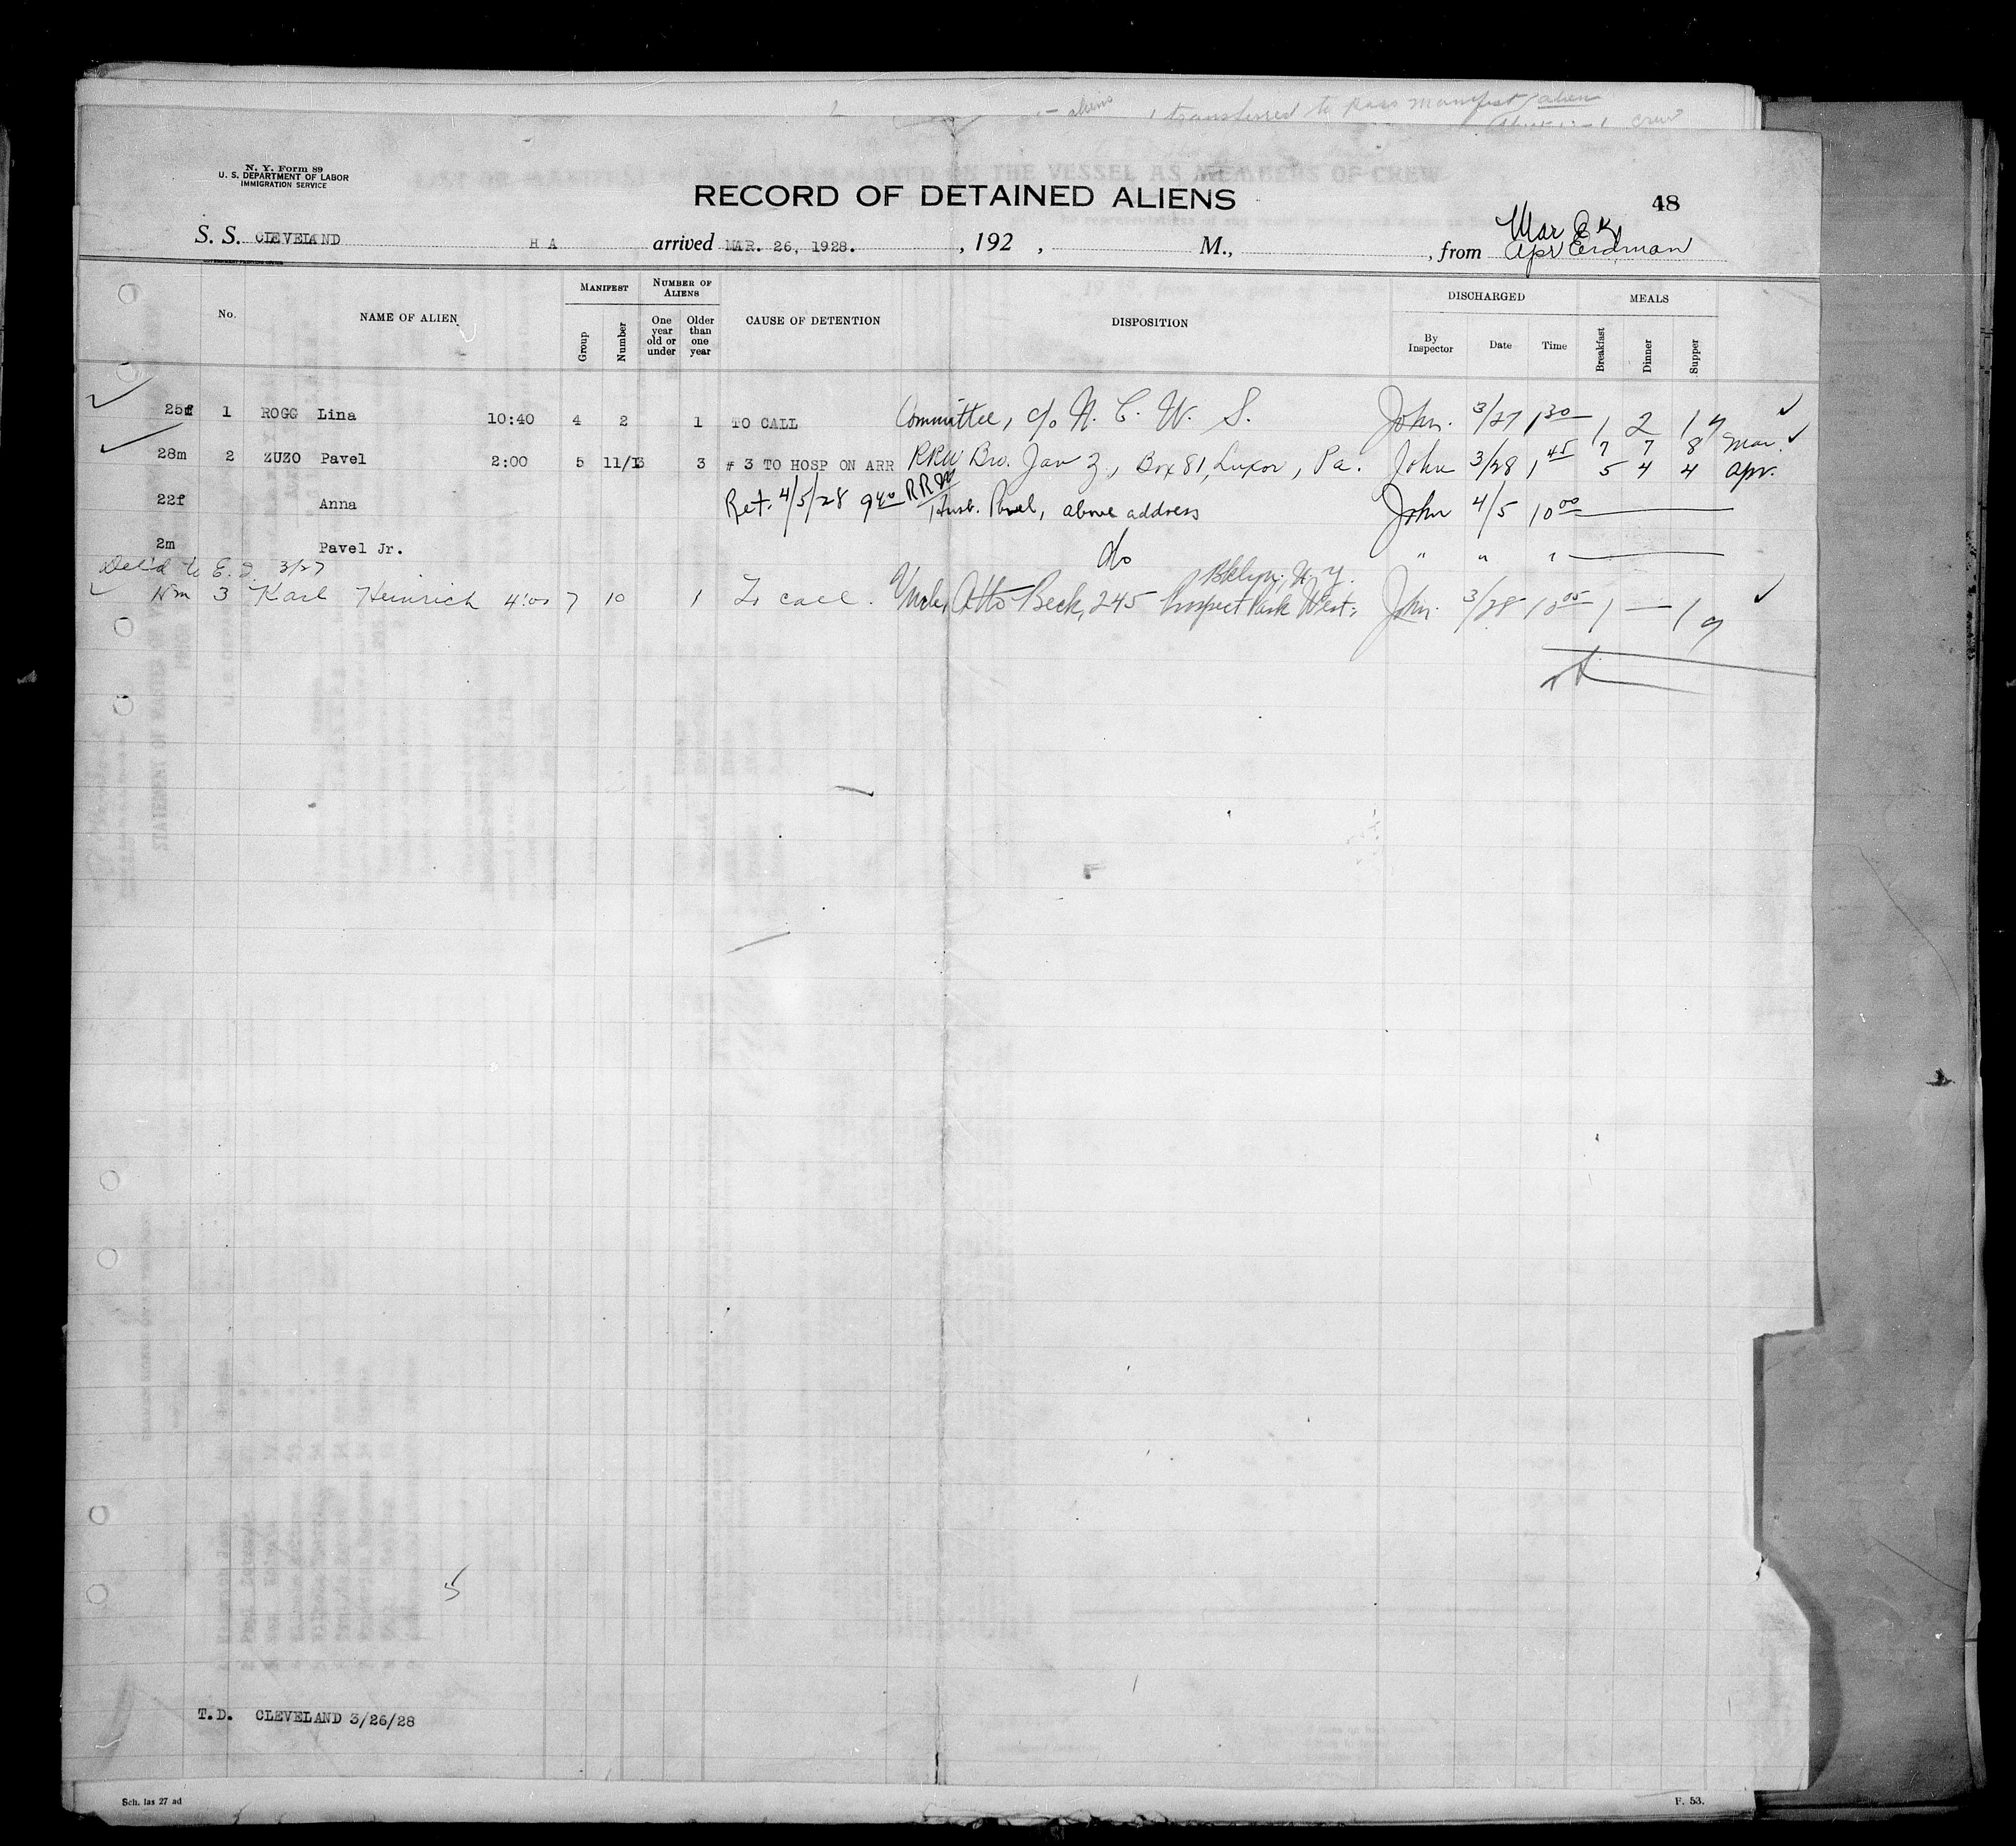 transferred to pass manifest alien
crew
N. Y. Form 89
U. S. DEPARTMENT OF LABOR
IMMIGRATION SERVICE
RECORD OF DETAINED ALIENS
48
S. S. CLEVELAND H A arrived MAR. 26, 1928. , 192 , M., , from Mar E K
Apr Erdman
No. NAME OF ALIEN MANIFEST Group Number NUMBER OF ALIENS One year old or under Older than one year CAUSE OF DETENTION DISPOSITION DISCHARGED By Inspector Date Time MEALS Breakfast Dinner Supper
25f 1 ROGG Lina 10:40 4 2 1 TO CALL Committee, c/o N. C. W. S. John. 3/27 1 30 1 2 1
28m 2 ZUZO Pavel 2:00 5 11/13 3 # 3 TO HOSP ON ARR RRW Bro. Jan Z., Box 81, Luxor, Pa. John 3/28 1 45 7 7 8 Mar.
5 4 4 Apr.
22f Anna Ret. 4/5/28 9 40 RRW Husb. Pavel, above address John 4/5 10 00
2m Pavel Jr. do " " "
Del'd to E. I. 3/27
3 Karl Heinrich 4:00 7 10 1 To call. Uncle, Otto Beck, 245 Prospect Park West, Bklyn, N.Y. John. 3/28 10 05 1 — 1
5
T.D. CLEVELAND 3/26/28
Sch. las 27 ad
F. 53.